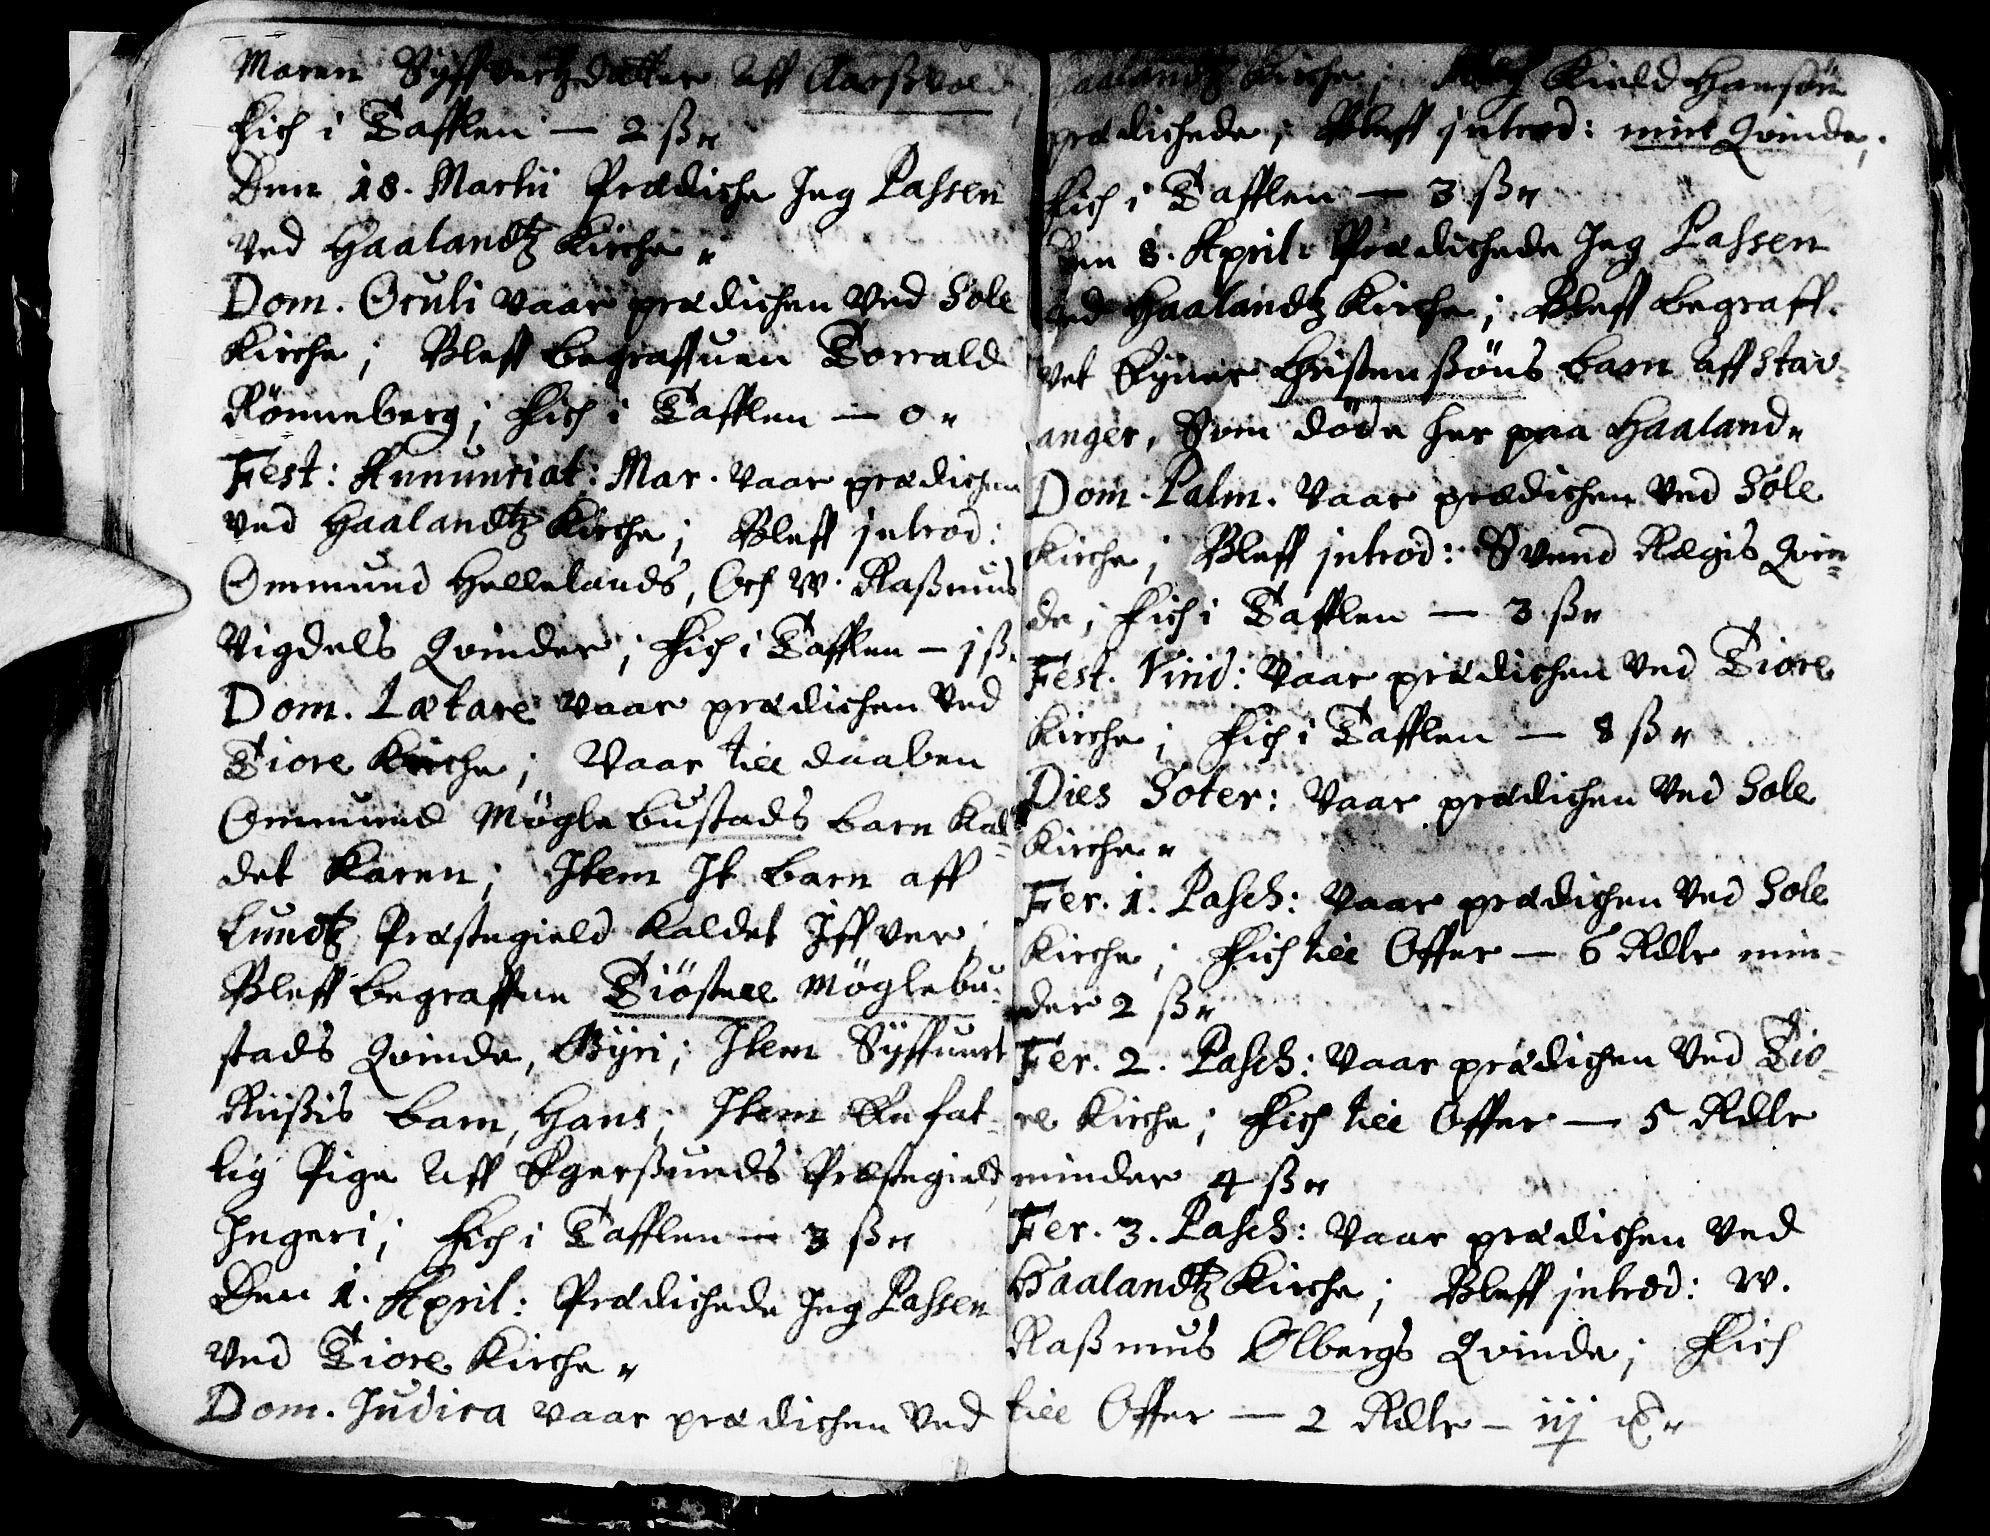 Maren Syffvertzdatter Aff Aarßvold,
Fich i Tafflen — 2 ß
Den 18. Martii Prædiche Jeg Passen
Ved Haalandtz Kirche
Dom. Oculi Vaar prædichen Ved Sole
Kirche; Bleff begraffuen Torrald
Rönneberg; Fich i Tafflen — 0
Fest: Annunciat: Mar. Vaar prædichen
Ved Haalandtz Kirche; Bleff introd:
Ommund Hellelands, Och W. Raßmus
Vigdels Qvinder; Fich i Tafflen — j ß
Dom. Lætare Vaar prædichen Ved
Tiore Kirche; Vaar till daaben
Ommund Möglebustads barn kal-
det Karen; Item It barn aff
Lundtz Præstegield kaldet Iffver;
Bleff begraffuen Tiöstell Möglebu-
stads Qvinde, Gyri; Item Syffuert
Riißis barn, Hans; Item En fat-
tig Pige Aff Egerßunds Præstegield,
Ingeri; Fich i Tafflen — 3 ß
Den 1. April: Prædichede Jeg Passen
Ved Tiore Kirche
Dom. Judica Vaar prædichen Ved
Haalandtz Kirche; Kield Hansön
prædichede; Bleff introd: min Qvinde;
Fich i Tafflen — 3 ß
Den 8. April: Prædichede Jeg Passen
Ved Haalandtz Kirche; Bleff begraff-
vet Eyner Christenßöns barn aff Stav-
anger, Som döde her paa Haaland
Dom. Palm. Vaar prædichen Ved Sole
Kirche; Bleff introd: Svend Rægis Qvin-
de; Fich i Tafflen — 3 ß
Fest. Virid: Vaar prædichen Ved Tiore
Kirche; Fich i Tafflen — 8 ß
Dies Soter: Vaar prædichen Ved Sole
Kirche
Fer. 1. Pasch: Vaar prædichen Ved Sole
Kirche; Fich till Offer — 6 Rdlr min-
der 2 ß
Fer. 2. Pasch: Vaar prædichen Ved Tio-
re Kirche; Fich till Offer — 5 Rdlr
minder 4 ß
Fer. 3. Pasch: Vaar prædichen Ved
Haalandtz Kirche; Bleff introd: W.
Raßmus Ølbergs Qvinde; Fich
till Offer — 2 Rdlr — iij